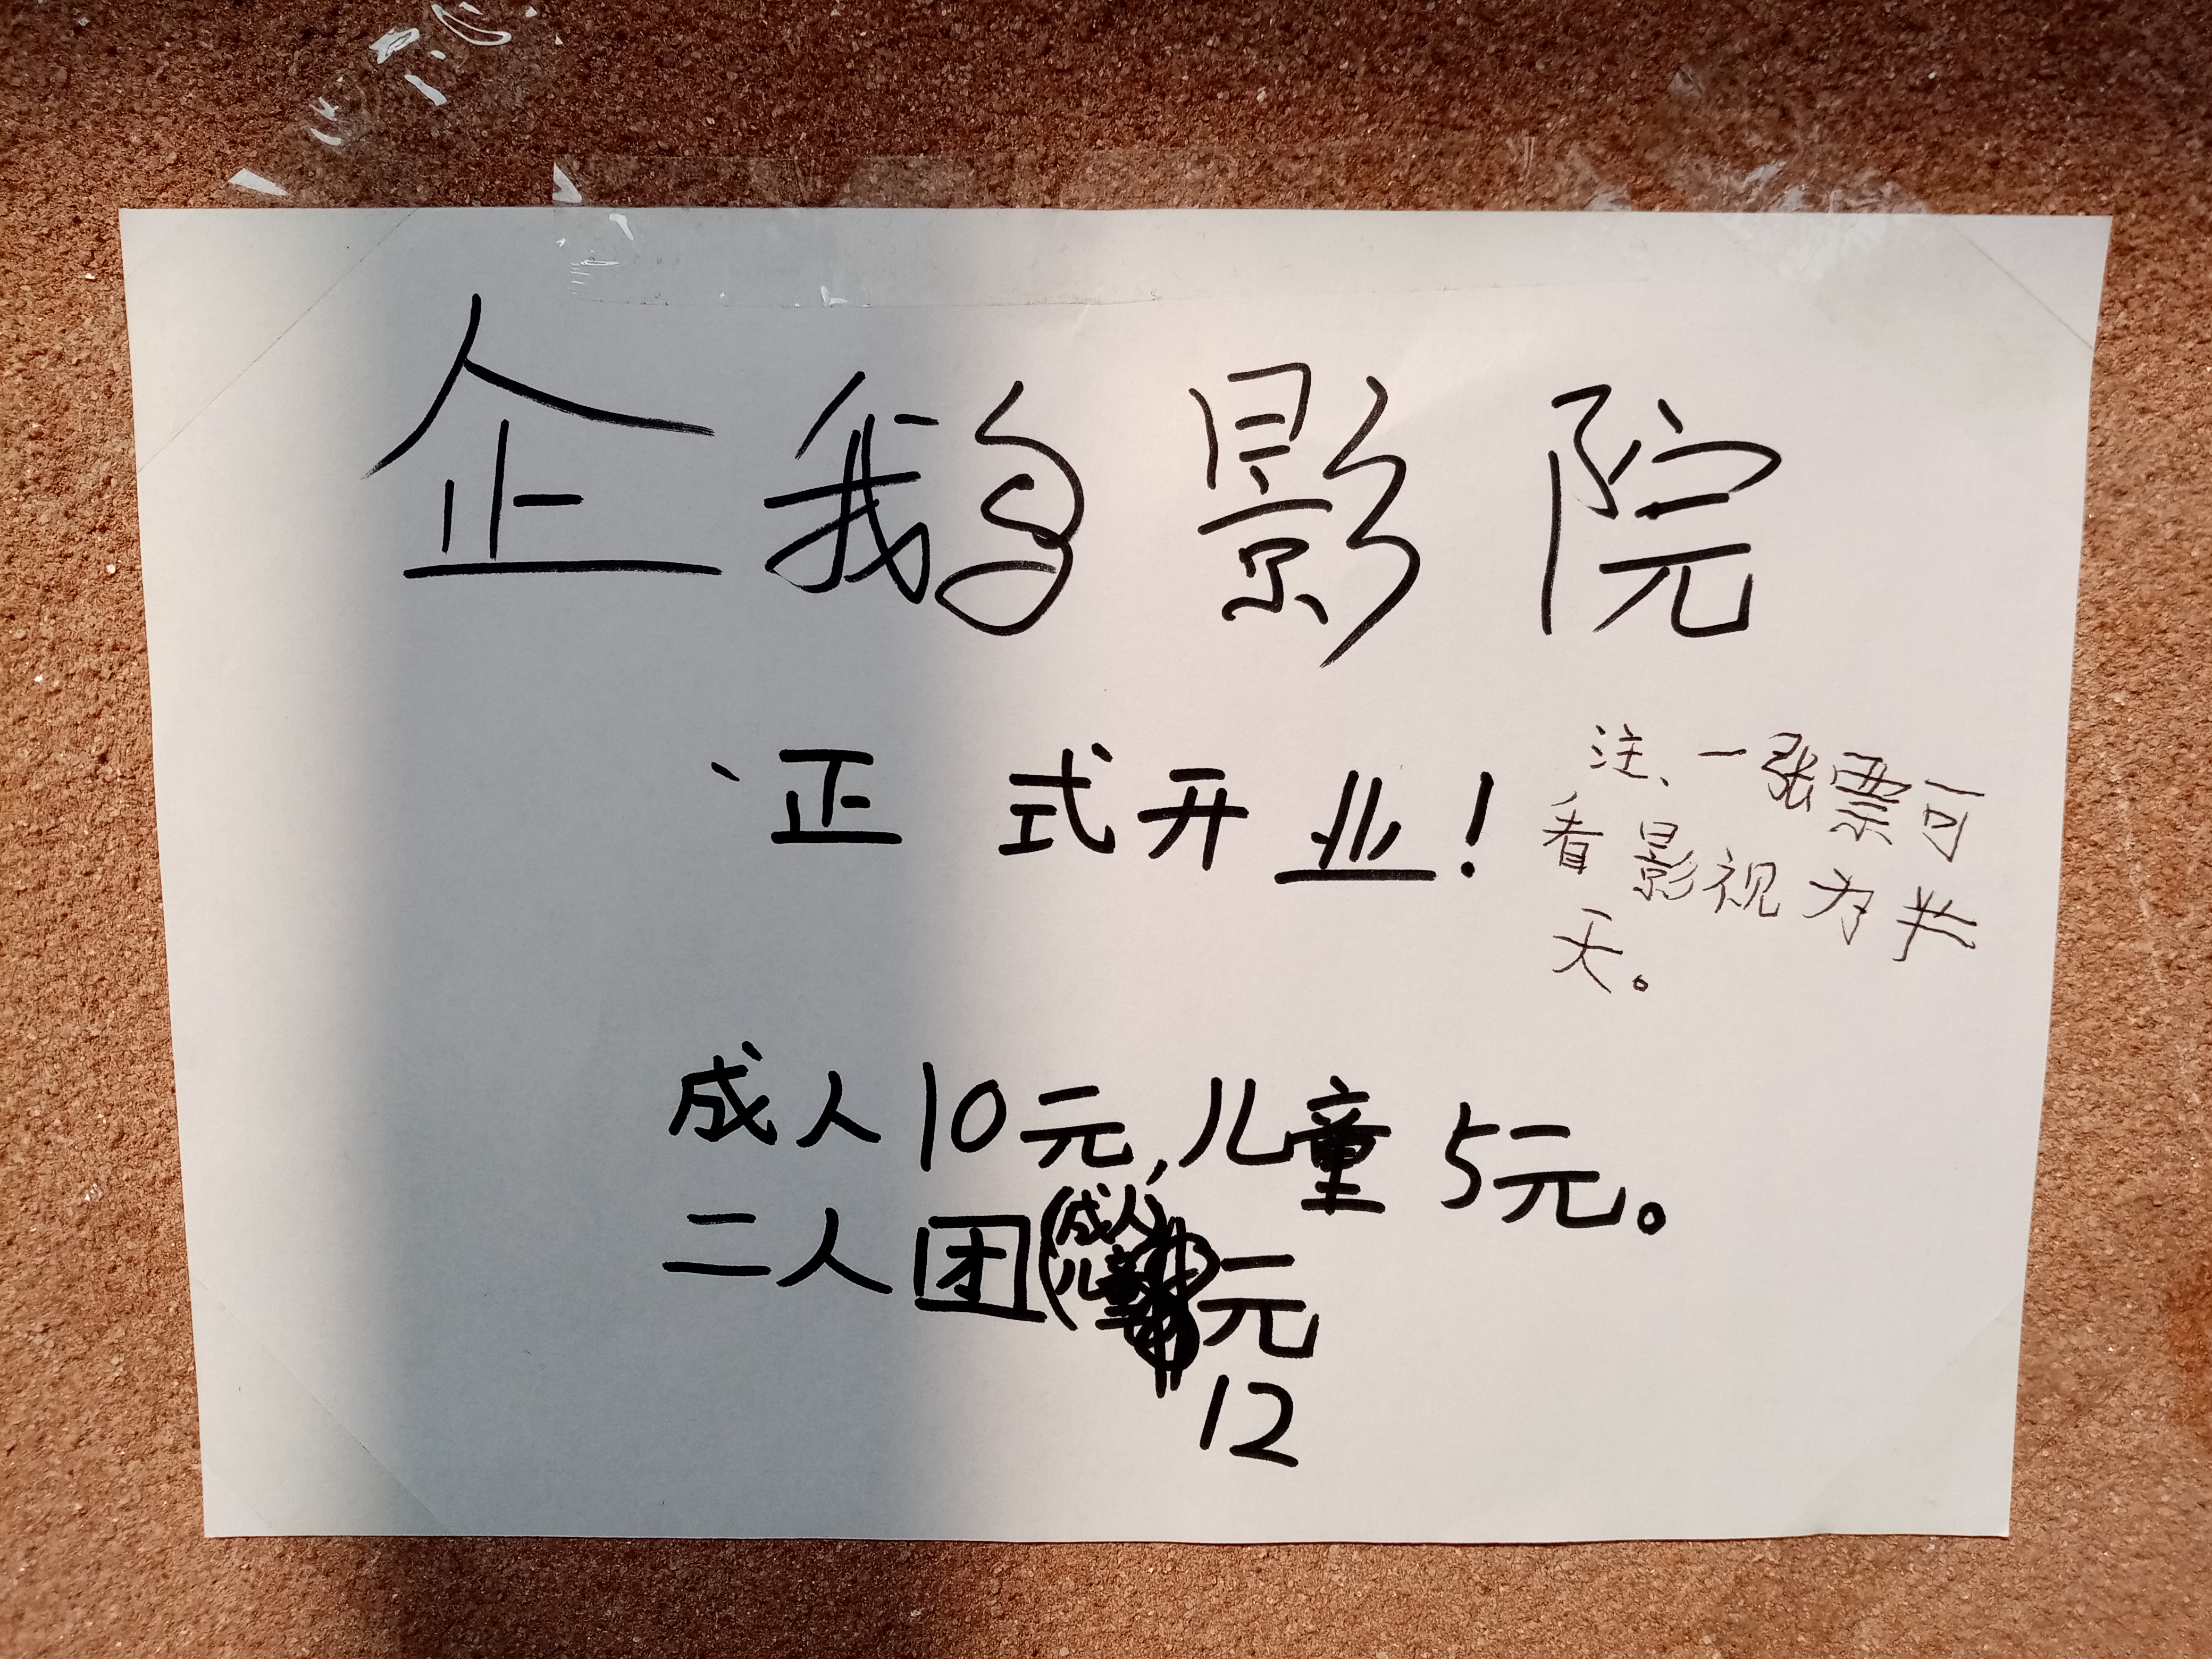 企鹅影院
正式开业！
注、一张票可
看影视为半
天。
成人10元,儿童5元。
二人团(成人
儿童)元
12